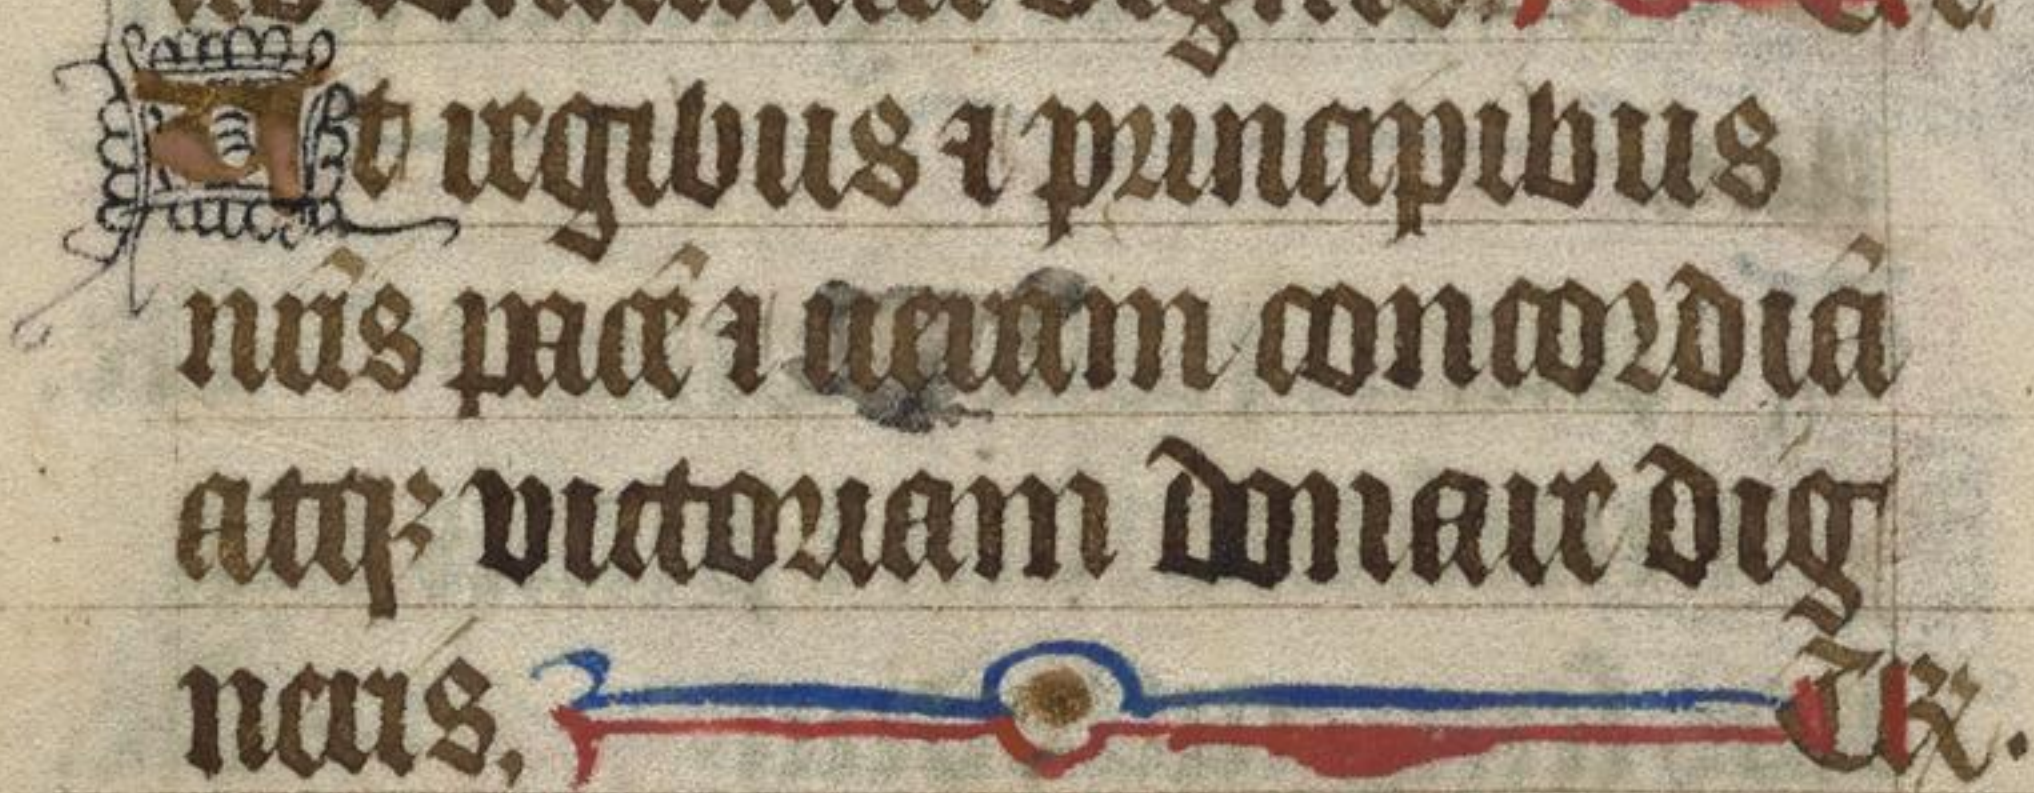 ut regibus ⁊ principibus
nr̄is pacē ⁊ ueram concordiā
atqꝫ victoriam donare dig
neris, Te rꝰ.